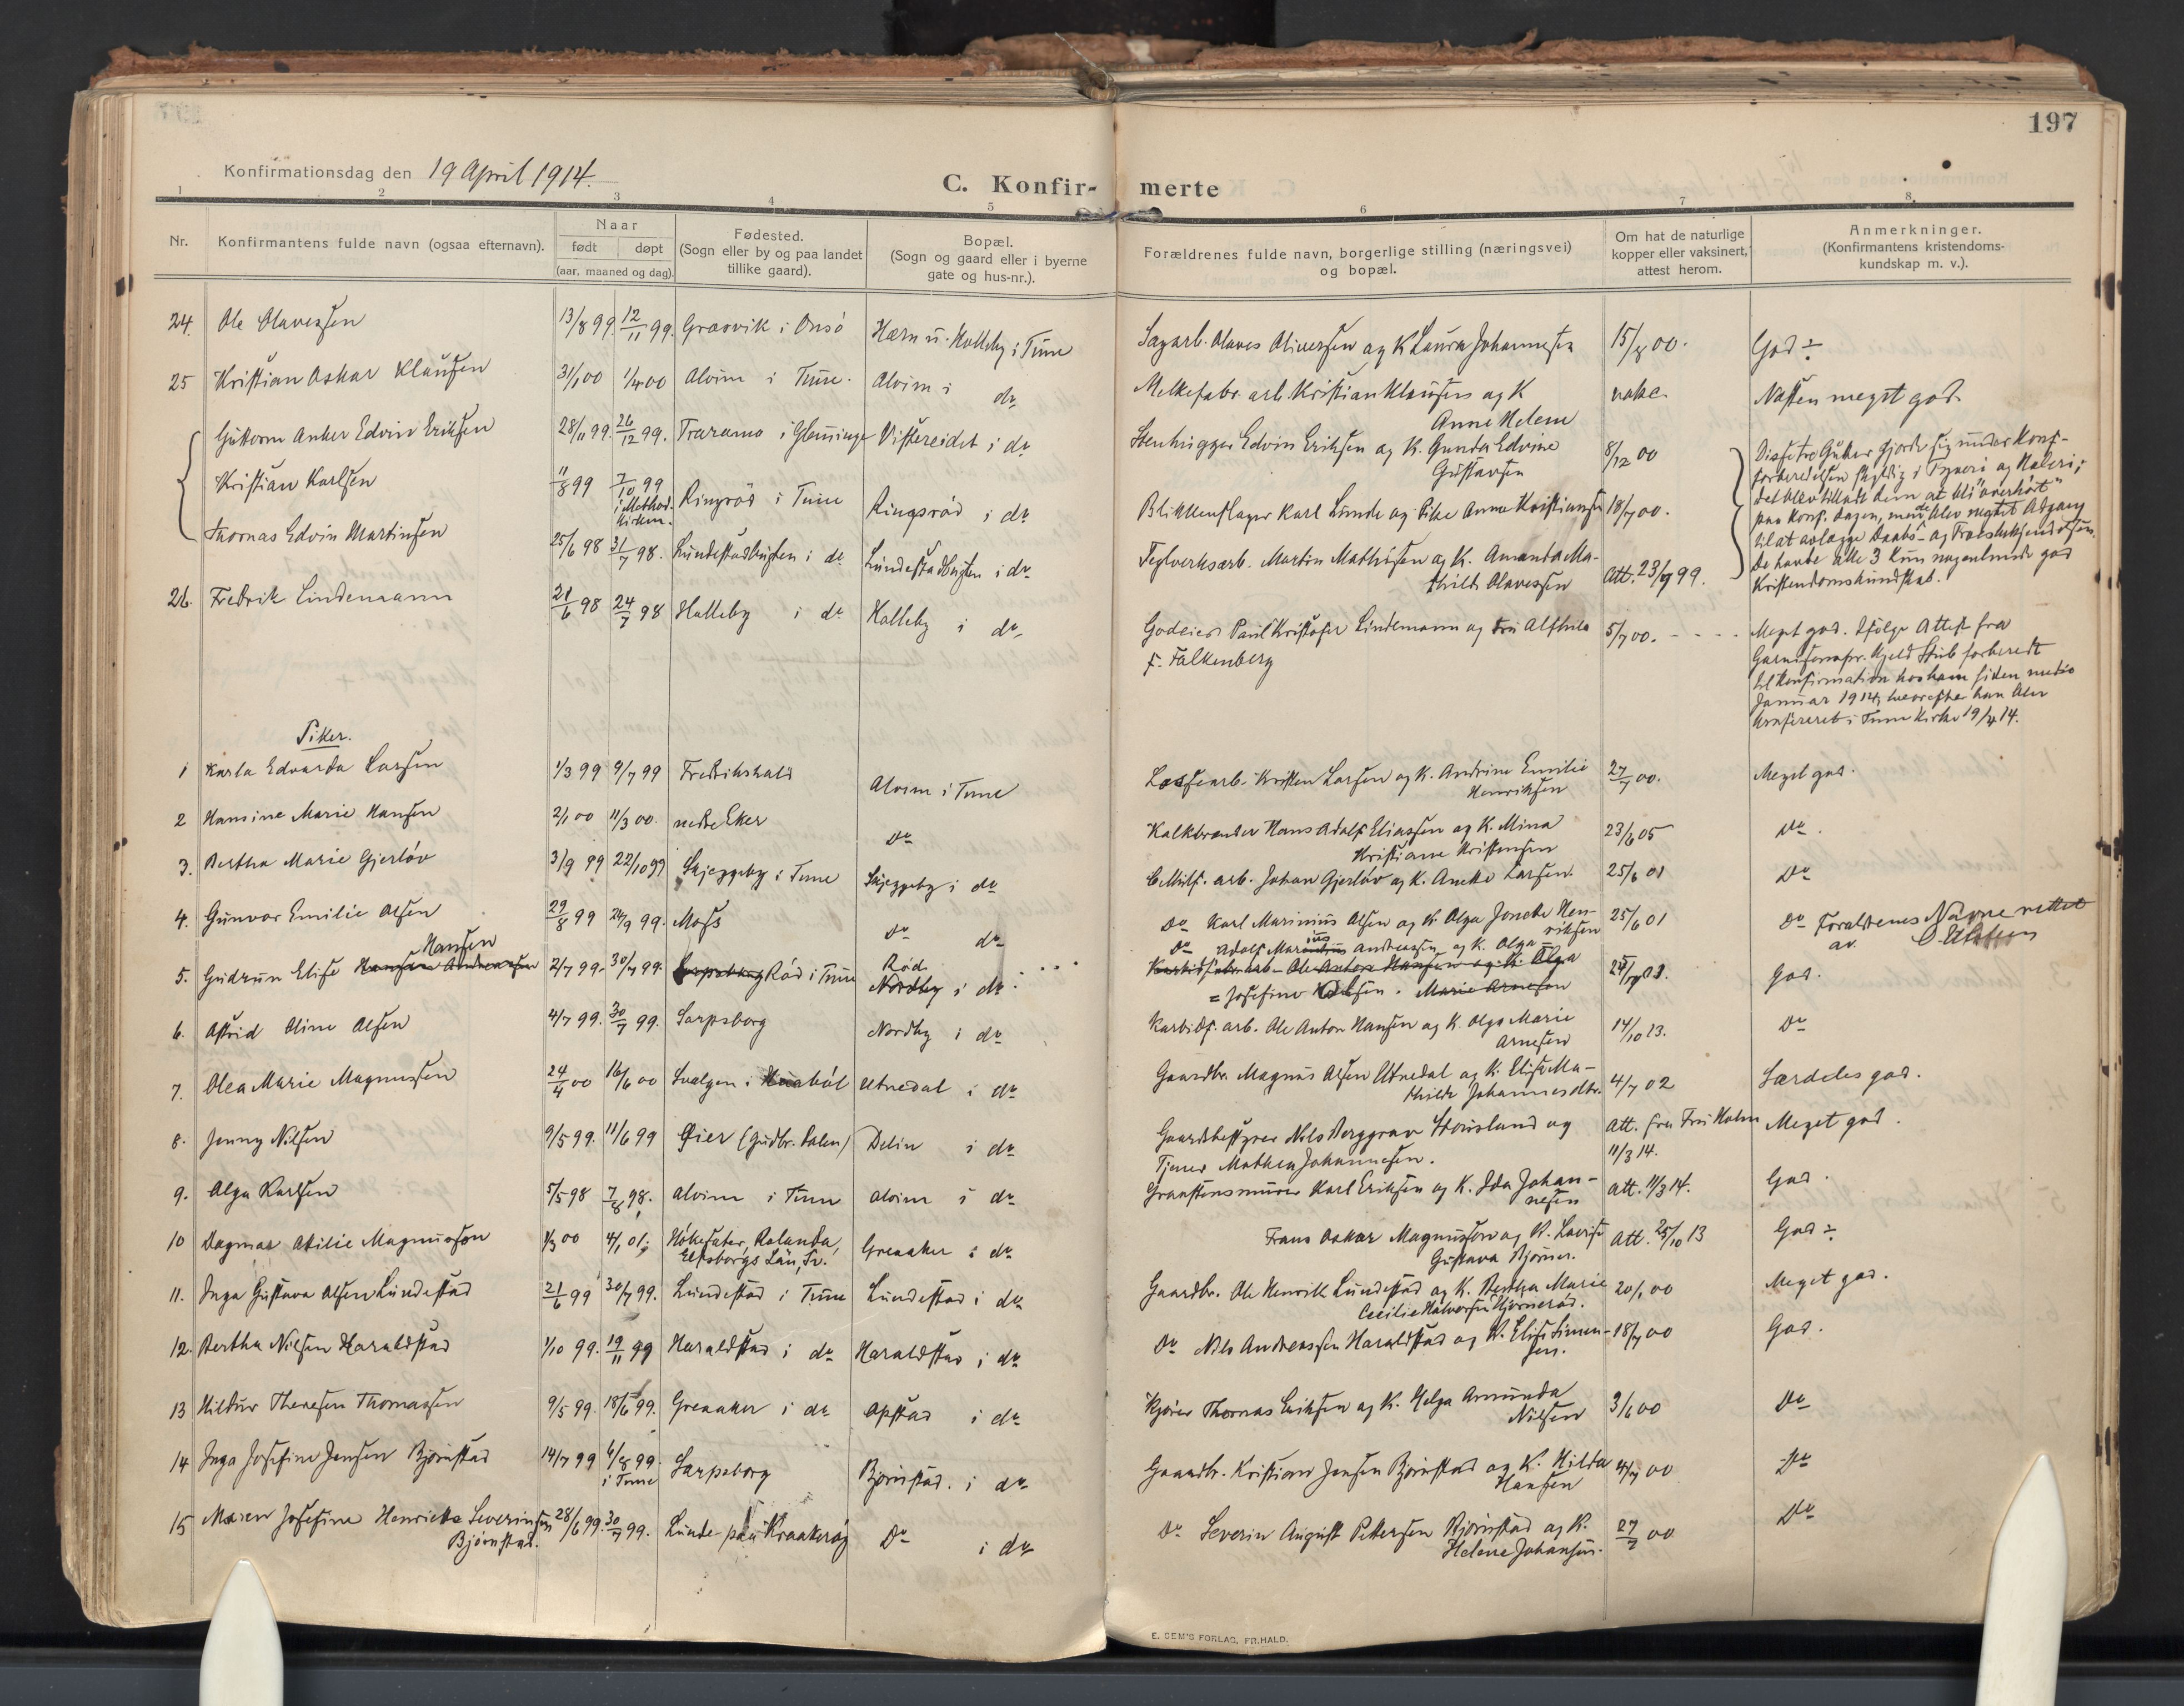 197
Konfirmationsdag den 19 April 1914.
C. Konfir- merte
1 2 3 4 5 6 7 8.
Nr. Konfirmantens fulde navn (ogsaa efternavn). Naar født døpt (aar, maaned og dag). Fødested. (Sogn eller by og paa landet tillike gaard). Bopæl. (Sogn og gaard eller i byerne gate og hus-nr.). Forældrenes fulde navn, borgerlige stilling (næringsvei) og bopæl. Om hat de naturlige kopper eller vaksinert, attest herom. Anmerkninger. (Konfirmantens kristendoms- kundskap m. v.).
24. Ole Olavessen 13/8 99. 12/11 99. Græsvik i Onsø Hærn u. Halleby i Tune Sagarb. Olaves Oliversen og K Laura Johannesen 15/8 00. God ÷
25 Kristian Oskar Klausen 31/1 00 1/4 00 Alvim i Tune. Alvim i do Melkefabr. arb. Kristian Klausen og K
Anne Helene vakc. Næsten meget god.
Guttorm Anker Edvin Eriksen 28/11 99. 26/12 99. Traramo i Glemminge Vistereidet i do Stenhugger Edvin Eriksen og K. Gunda Edvine
Gustavsen 8/12 00
Kristian Karlsen 11/8 99 7/10 99
i Method.
Kirken. Ringsrød i Tune Ringsrød i do Blikkenslager Karl Lunde og Pike Anna Kristiansen 18/7 00.
Thomas Edvin Martinsen 25/6 98 31/7 98. Lundestadbugten i do Lundestadbugten i do Teglverksarb. Martin Mathisen og K. Amanda Ma-
thilde Olavessen Att. 23/9 99.
Disse tre Gutter gjorde sig under Konf-
forberedelsen skyldig i Tyveri og Haleri;
det blev tilladt dem at bli "overhørt"
paa Konf. dagen, men de blev negtet Adgang
til at avlægge Daabs- og Troesbekjendelsen.
De havde alle 3 kun nogenlunde god
Kristendomskundskab.
26. Fredrik Lindemann 21/6 98 24/7 98 Halleby i do Halleby i do Godeier Paul Kristofer Lindemann og Fru Alfhild
f. Falkenberg 5/7 00. - - - - Meget god. Ifølge Attest fra
Garnisonspr. Kjeld Stub forberedt
til Konfirmation hos ham siden medio
Januar 1914, hvorefter han blev
konfirmeret i Tune Kirke 19/4 14.
Piker.
1 Karla Edvarda Larsen 1/3 99 9/7 99 Fredrikshald Alvim i Tune Lossearb. Kristen Larsen og K. Andrine Emilie
Henriksen 27/7 00. Meget god.
2 Hansine Marie Hansen 2/1 00 11/3 00. nedre Eker Do Kalkbrænder Hans Adolf Eliassen og K. Mina
Kristiane Kristensen 23/6 05 Do.
3. Bertha Marie Gjerløv 3/9 99 22/10 99 Skjeggeby i Tune Skjeggeby i do Cellulf. arb. Johan Gjerløv og K. Anette Larsen. 25/6 01 Do
4. Gunvor Emilie Olsen 29/8 99 24/9 99. Moss Do do Do Karl Marinius Olsen og K. Olga Jonette Hen-
riksen 25/6 01 Do Forældrenes Navne rettet
av
5. Gudrun Elise Hansen Andreassen Hansen 2/7 99. 30/7 99. Sarpsborg Rød i Tune Rød
Nordby i do. Do Adolf Marinius Andreassen og K. Olga
Karbidfabr. arb. Ole Anton Hansen og K. Olga
= Josefine Marie Arnesen God.
6. Astrid Oline Olsen 4/7 99. 30/7 99. Sarpsborg Nordby i do Karbidf. arb. Ole Anton Hansen og K. Olga Marie
Arnesen 14/10 13. Do
7. Olea Marie Magnussen 24/4 00 16/6 00 Svalgen i Utnedal i do Gaardbr. Magnus Olsen Utnedal og K. Elise Ma-
thilde Johannesdtr. 4/7 02 Særdeles god.
8. Jenny Nilsen 9/5 99. 11/6 99 Øier (Gudbr. dalen) Delin i do Gaardsbestyrer Nils Berggrav Storsland og
Tjener Mathea Johannesen. Att. fra Fru Holm
11/3 14. Meget god.
9. Olga Karlsen 5/5 98 7/8 98. Alvim i Tune Alvim i do Graastensmurer Karl Eriksen og K. Ida Johan-
nesen Att. 11/3 14. God.
10 Dagmar Otilie Magnusson 1/3 00 4/1 01. Høkesater, Rolanda,
Elfsborgs Län, Sv. Greaaker i do Frans Oskar Magnusson og K. Lovise
Gustava Bjørner. Att. 25/10 13 God ÷
11. Inga Gustava Olsen Lundestad 21/6 99 30/7 99. Lundestad i Tune Lundestad i do Gaardbr. Ole Henrik Lundestad og K. Berthea Marie
Cecilie Halvorsen Hjørnerød. 20/1 00 Meget god.
12. Bertha Nilsen Haraldstad 1/10 99. 19/11 99 Haraldstad i do Haraldstad i do Do Nils Andreassen Haraldstad og K. Elise Simen-
sen. 18/7 00 God.
13 Hildur Theresen Thomassen 9/5 99. 18/6 99. Greaaker i do Opstad i do Kjører Thomas Eriksen og K. Helga Amunda
Nilsen 3/6 00 Do
14 Inga Josefine Jensen Bjørnstad 14/7 99 6/8 99.
i Tune Sarpsborg Bjørnstad. i do Gaardbr. Kristian Jensen Bjørnstad og K. Hilda
Hansen 4/7 00 Do
15 Maren Josefine Henriette Severinsen
Bjørnstad. 28/6 99. 30/7 99. Lunde paa Kraakerøy Do i do Do Severin August Pettersen Bjørnstad og K.
Helene Johansen. 27/7 00 Do
E. SEM'S FORLAG, FR.HALD.